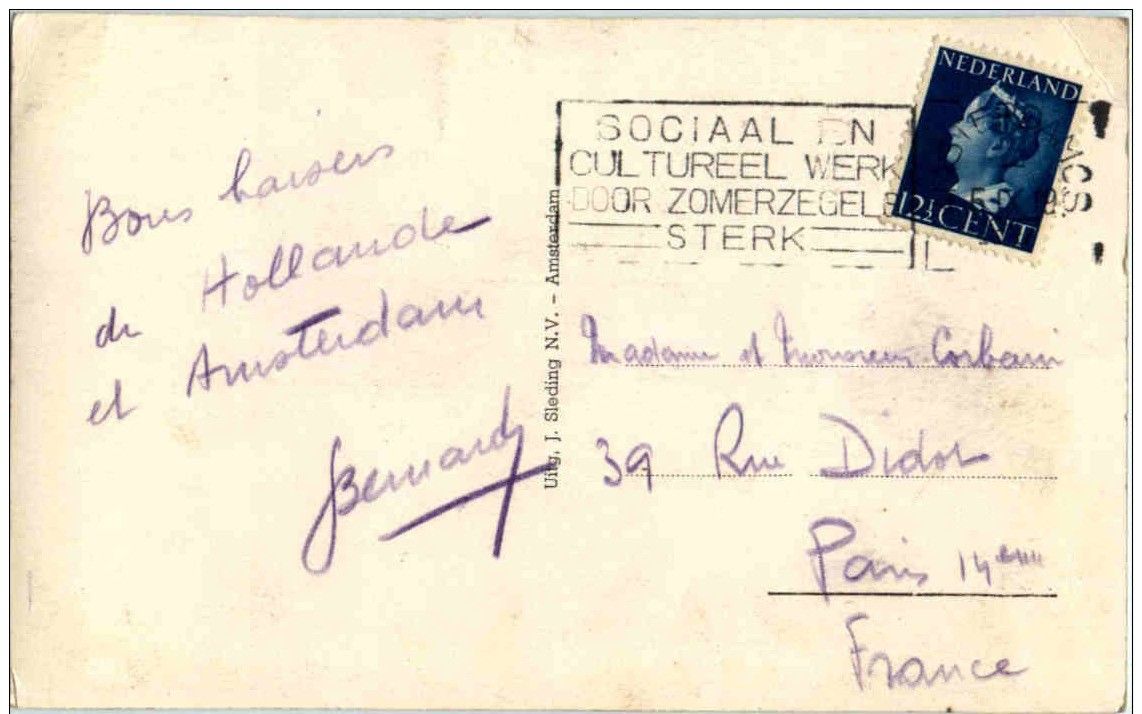 Bons baisers
de Hollande
et Amsterdam
Bernard
Uitg. J. Sleding N.V. - Amsterdam
SOCIAAL EN
CULTUREEL WERK
DOOR ZOMERZEGELS
STERK
NEDERLAND
12½ CENT
Madame et Monsieur Corbain
39 Rue Didot
Paris 14eme
France